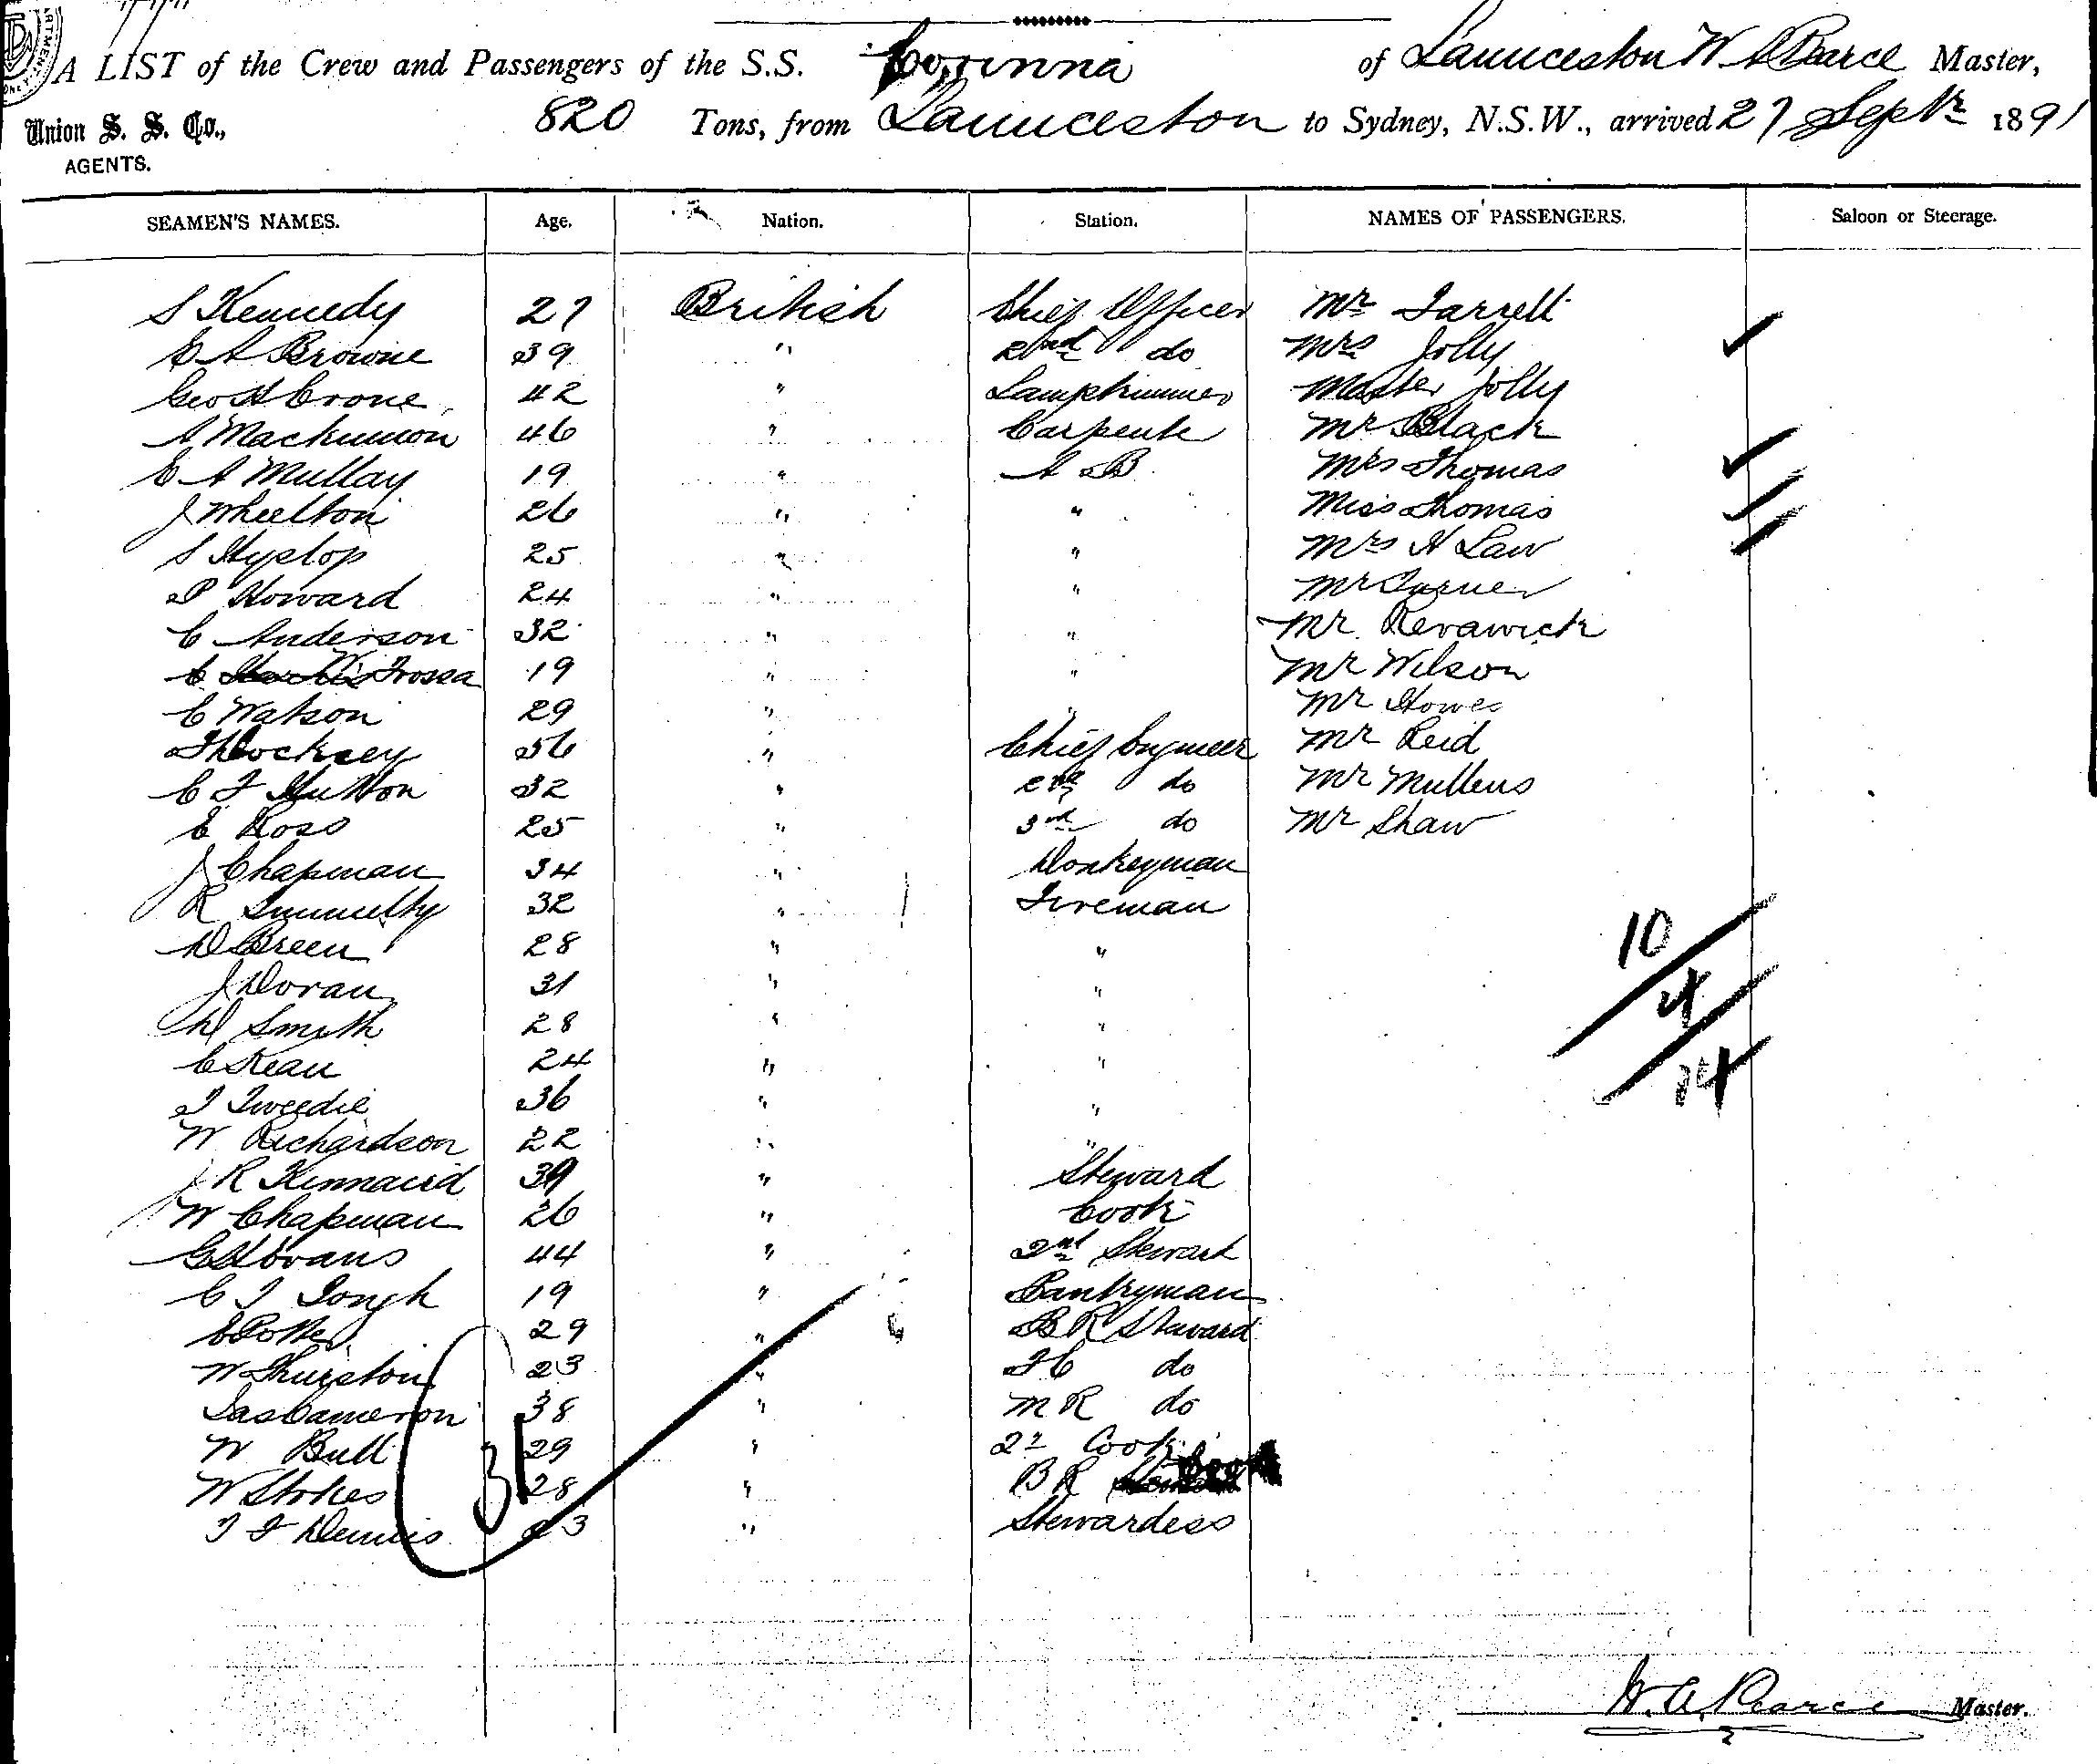 A LIST of the Crew and Passengers of the S.S. Corinna of Launceston W A Pearce Master,
Union S. S. Co., 820 Tons, from Launceston to Sydney, N.S.W., arrived 27 Septr 1891
AGENTS.
SEAMEN'S NAMES. Age. Nation. Station. NAMES OF PASSENGERS. Saloon or Steerage.
S Kennedy 27 British Chief Officer Mr Jarrett
E A Browne 39 " 2nd do Mrs Jolly
Geo H Crone 42 " Lamptrimmer Master Jolly
A Mackinnon 46 " Carpente Mr Black
E A Mullay 19 " A B Mrs Thomas
J Wheelton 26 " " Miss Thomas
S Hyslop 25 " " Mrs H Law
P Howard 24 " " Mr Turner
C Anderson 32 " " Mr
C 19 " " Mr Wilson
C Watson 29 " " Mr Howes
56 " Chief Engineer Mr Reid
C F Hutton 32 " 2nd do Mr Mullens
E Ross 25 " 3rd do Mr Shaw
J Chapman 34 " Donkeyman
R 32 " Fireman
D Breen 28 " "
J Doran 31 " "
D Smith 28 " "
C Kean 24 " "
T Tweedie 36 " "
W Richardson 22 " "
J R Kinnaird 39 " Steward
W Chapman 26 " Cook
G H Evans 44 " 2nd Steward
C T Gough 19 " Pantryman
E Potter 29 " B R Steward
W Thurston 23 " F C do
Jas Cameron 38 " M R do
W Bull 29 " 2nd Cook
W Stokes 28 " B R
T F Dennis 23 " Stewardess
10
4
14
31
W. A. Pearce Master.